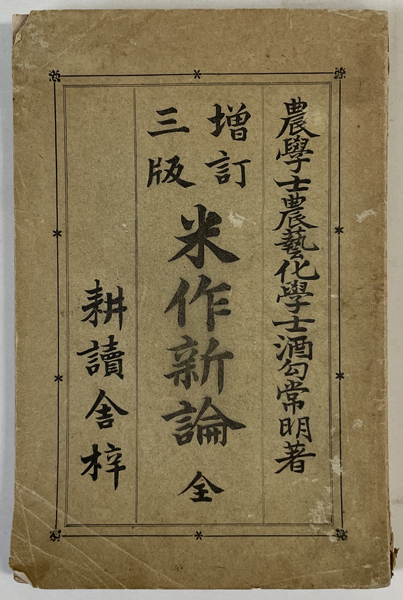 農學士農藝化學士酒勾常明著
增訂
三版
米作新論 全
耕讀舍梓